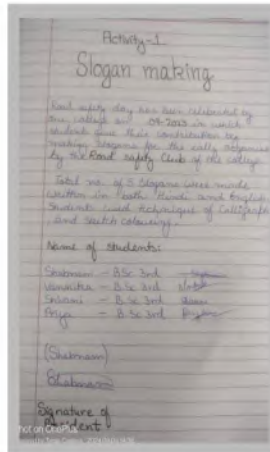 Activity-1
Slogan making
Road safety day has been celebrated by
the college on 09-2023 in which
students give their contribution by
making slogans for the rally organised
by the Road Safety Club of the college
Total no of 5 Slogans were made
written in both Hindi and English
Students used technique of Calligraphy
and sketch colouring.
Name of Students:
Shabnam - B.Sc 3rd
- B.Sc 3rd
Shivani - B.Sc 3rd
- B.Sc 3rd
(Shabnam)
Shabnam
Signature of
Shot on OnePlus